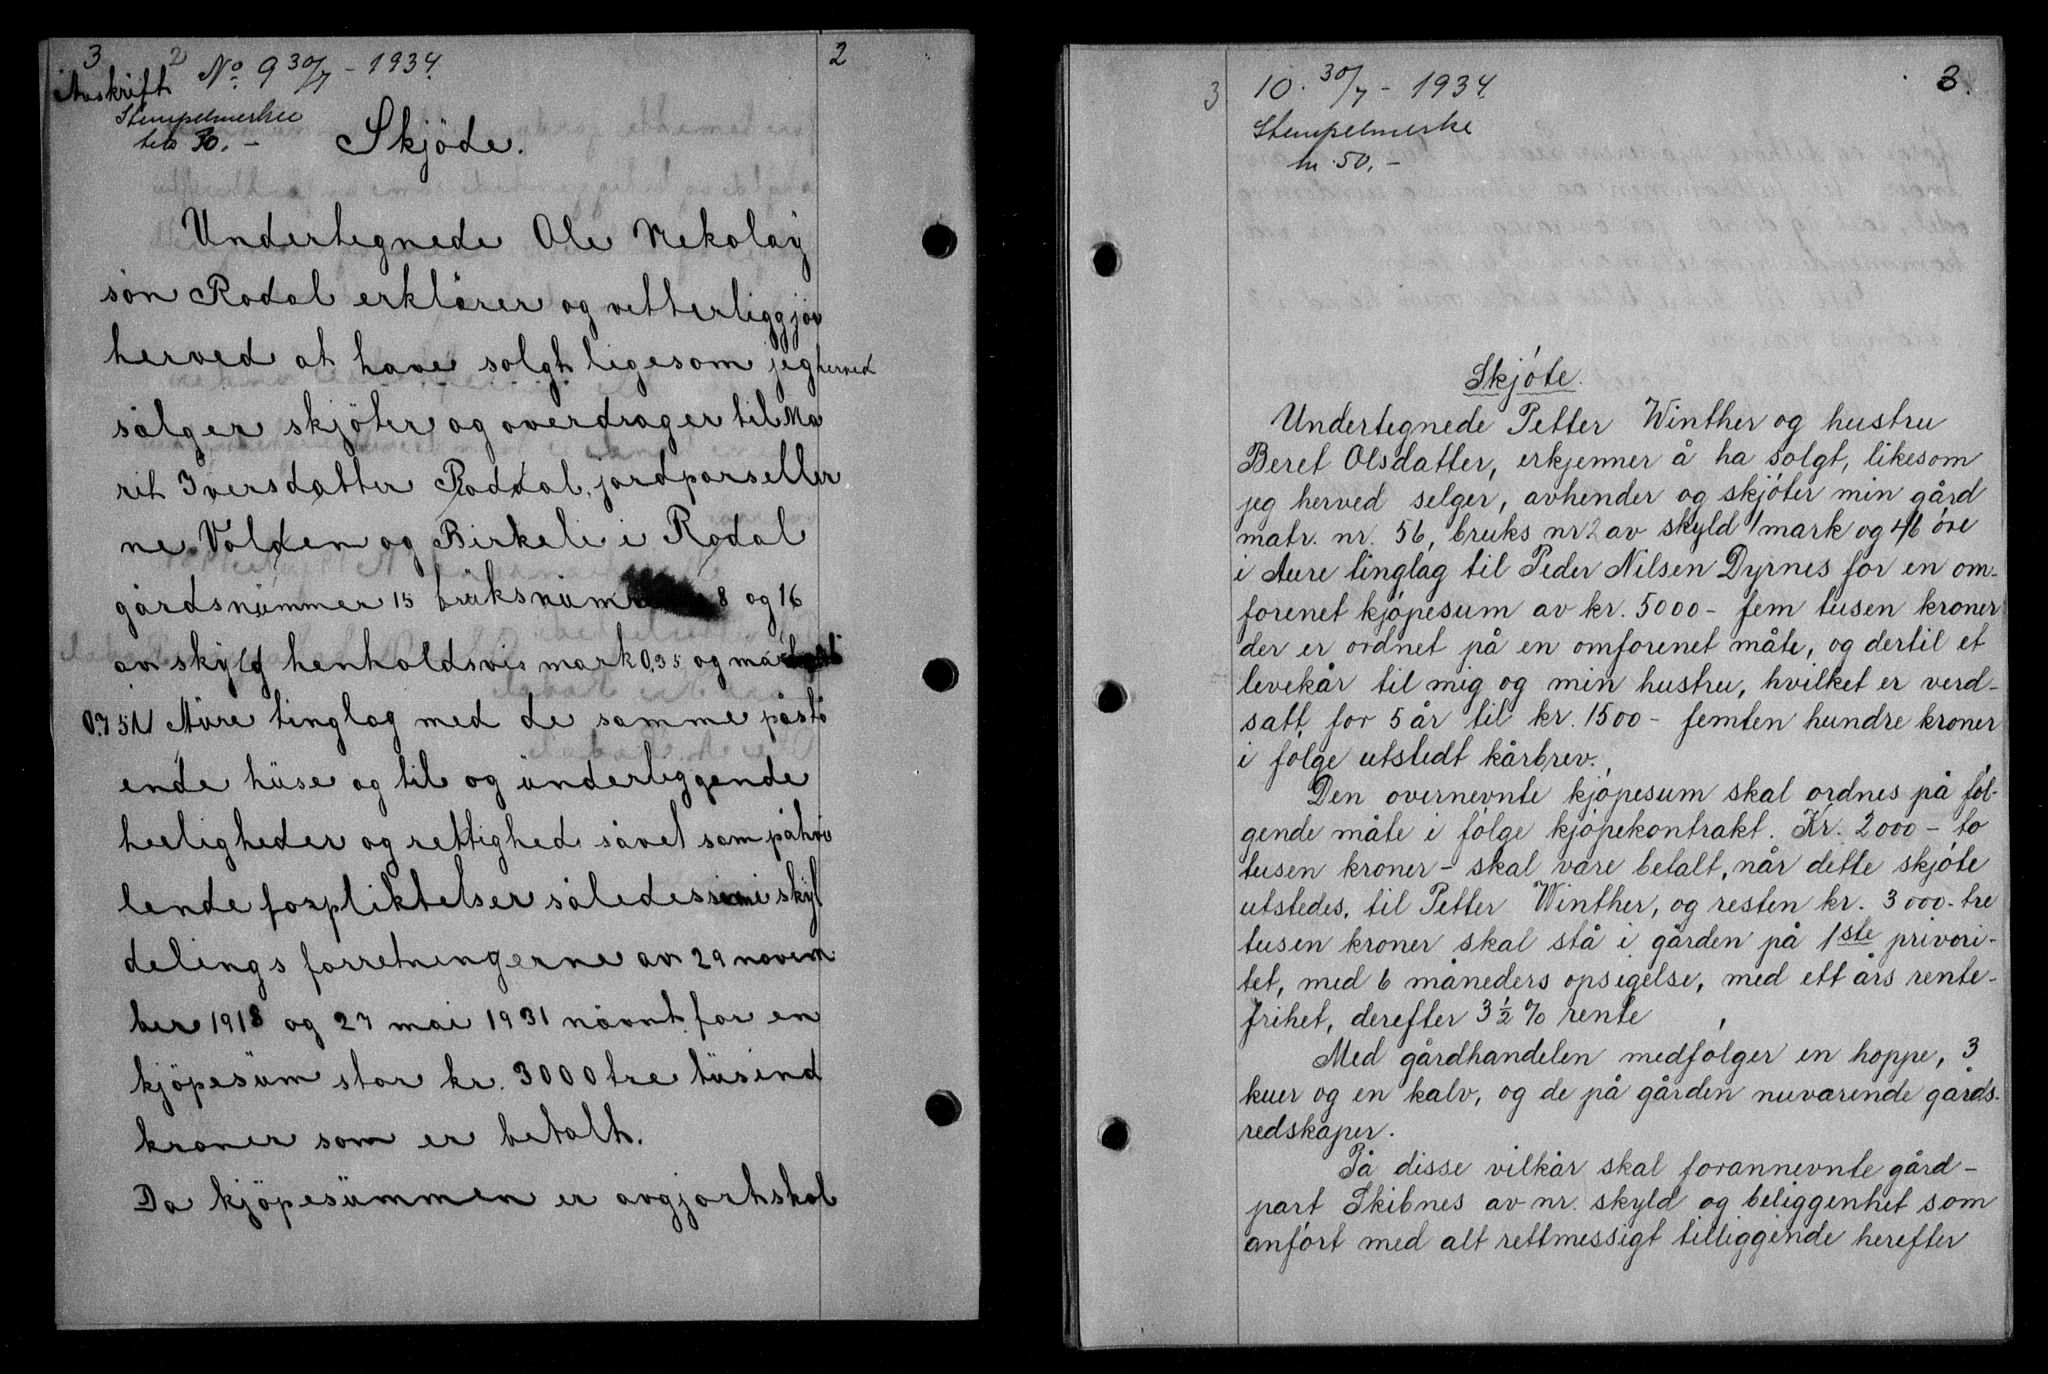 3 2 2
No 9 30/7 - 1934.
Avskrift
Stempelmerke
30. -
Skjöde.
Undertegnede Ole Nekolay
sön Rodal erklärer og vitterliggjör
herved at have solgt ligesom jeg herved
sälger skjöter og overdrager til Ma
rit Iversdatter Roddal jordparseller
ne Volden og Birkeli i Rodal
gårdsnummer 15 bruksnum 8 og 16
av skyld henholdsvis mark 0,35 og mark
0.75 i Aure tinglag med de samme påstå
ende huse og til og underliggende
herligheder og rettighed såvel som påhvi
lende forpliktelser således som i skyl
delings forretningerne av 29 novem
ber 1918 og 27 mai 1931 nävnt for en
kjöpesum stor kr. 3000 tre tusind
kroner som er betalt.
Da kjöpesummen er avgjort skal
3 10. 30/7 - 1934. 3.
Stempelmerke
kr. 50. -
Skjóte.
Undertegnede Petter Winther og hustru
Beret Olsdatter, erkjenner å ha solgt, likesom
jeg herved selger, avhender og skjóter min gård
matr. nr. 56, bruks nr 2 av skyld 1 mark og 46 óre
i Aure tinglag til Peder Nilsen Dyrnes for en om-
forenet kjópesum av kr. 5000 - fem tusen kroner
der er ordnet på en omforenet måte, og dertil et
levekår til mig og min hustru, hvilket er verd-
satt for 5 år til kr. 1500 - femten hundre kroner
i fólge utstedt kårbrev.
Den overnevnte kjópesum skal ordnes på fól-
gende måte i fólge kjópekontrakt. Kr. 2000 - to
tusen kroner - skal være betalt, når dette skjóte
utstedes, til Petter Winther, og resten kr. 3000 - tre
tusen kroner skal stå i gården på 1ste privori-
tet, med 6 måneders opsigelse, med ett års rente-
frihet, derefter 3 1/2 % rente
Med gårdhandelen medfólger en hoppe, 3
kuer og en kalv, og de på gården nuværende gårds-
redskaper.
På disse vilkår skal forannevnte gård-
part Skibnes av nr. skyld og beliggenhet som
anfórt med alt rettmessigt tilliggende herefter